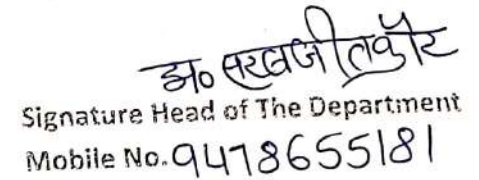 डॉ० सरबजीत कौर
Signature Head of The Department
Mobile No. 9478655181